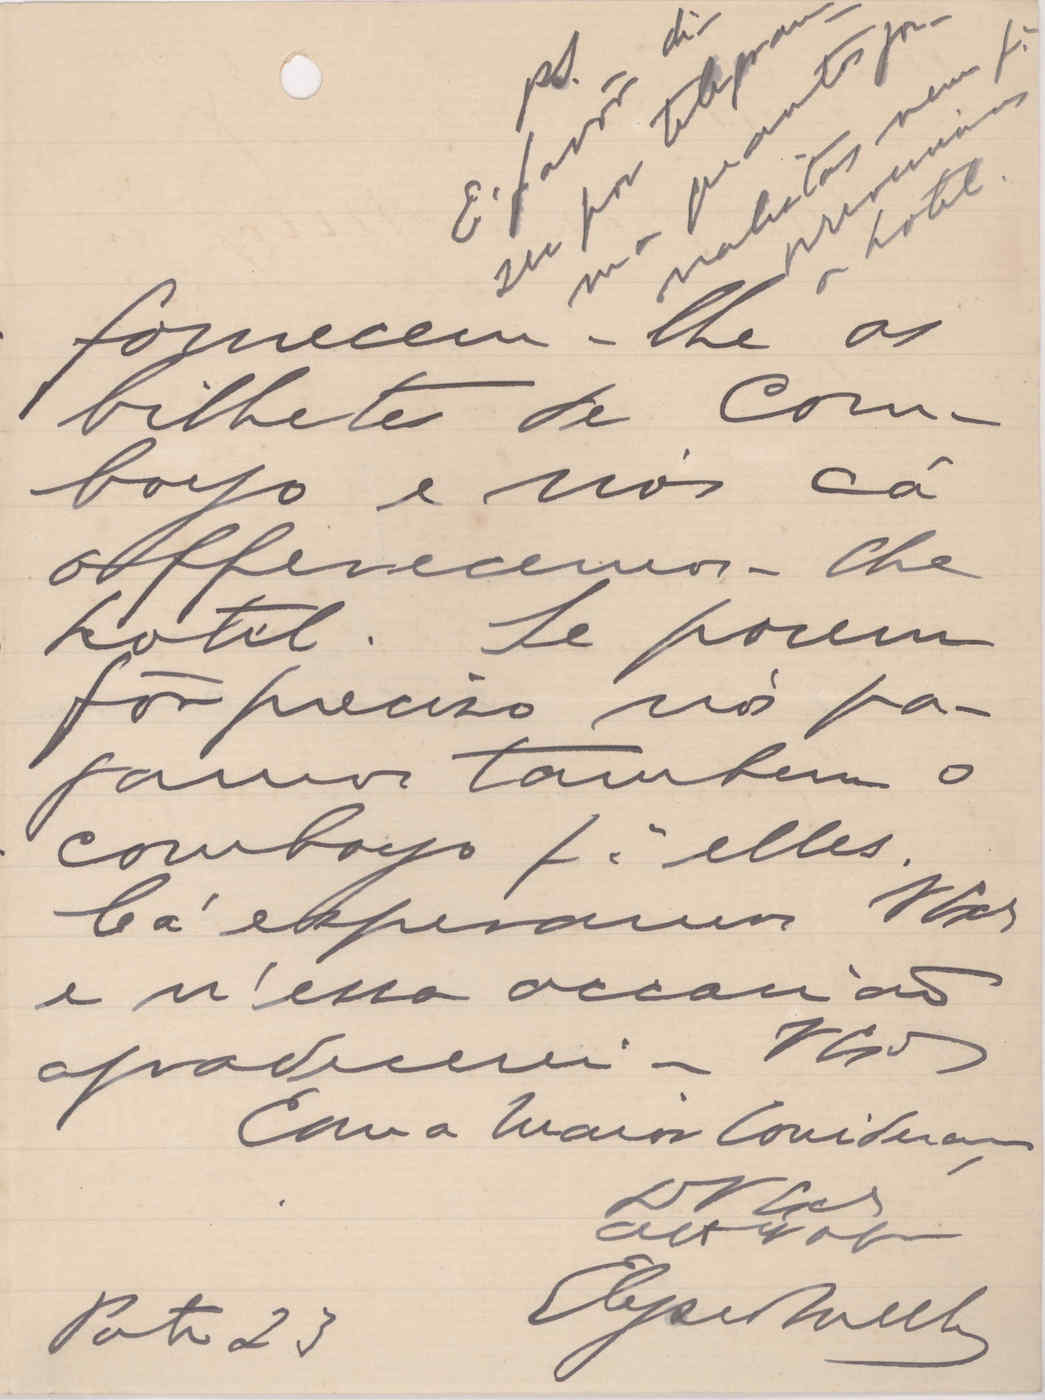 ps.
E' favôr di-
zer por telegram-
ma quantos jor-
nalistas vem p.ª
prevenirmos
o hotel.
fornecem-lhe os
bilhetes de Com-
boyo e nós cá
offerecemos-lhe
hotel. Se porem
fôr preciso nós pa-
gamos tambem o
comboyo p.ª elles.
Cá esperamos VExas
e n'essa occasião
agradecerei - VExas
Com a maior Consideraç
D VExas
Porto 23